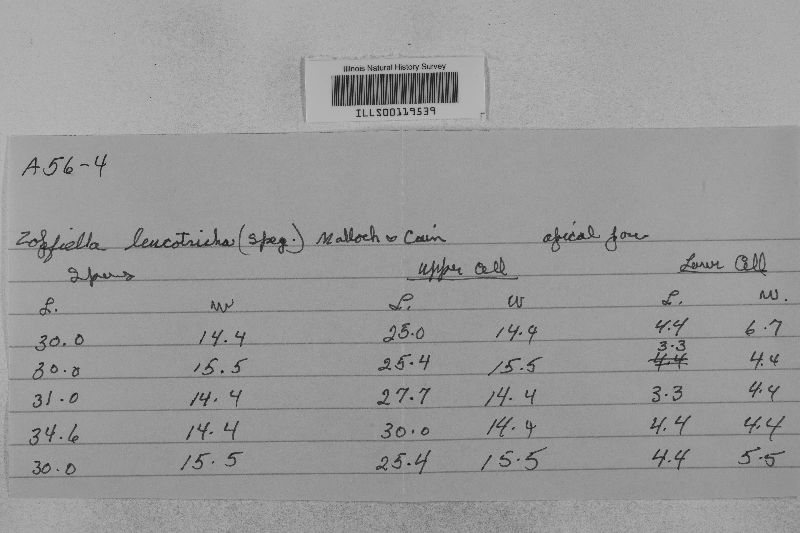 Illinois Natural History Survey
ILLS00119539
A56-4
Zopfiella leucotricha (Speg.) Malloch & Cain apical pore
Spores Upper Cell Lower Cell
L. W L. W L. W.
30.0 14.4 25.0 14.4 4.4 6.7
3.3
30.0 15.5 25.4 15.5 4.4 4.4
31.0 14.4 27.7 14.4 3.3 4.4
34.6 14.4 30.0 14.4 4.4 4.4
30.0 15.5 25.4 15.5 4.4 5.5